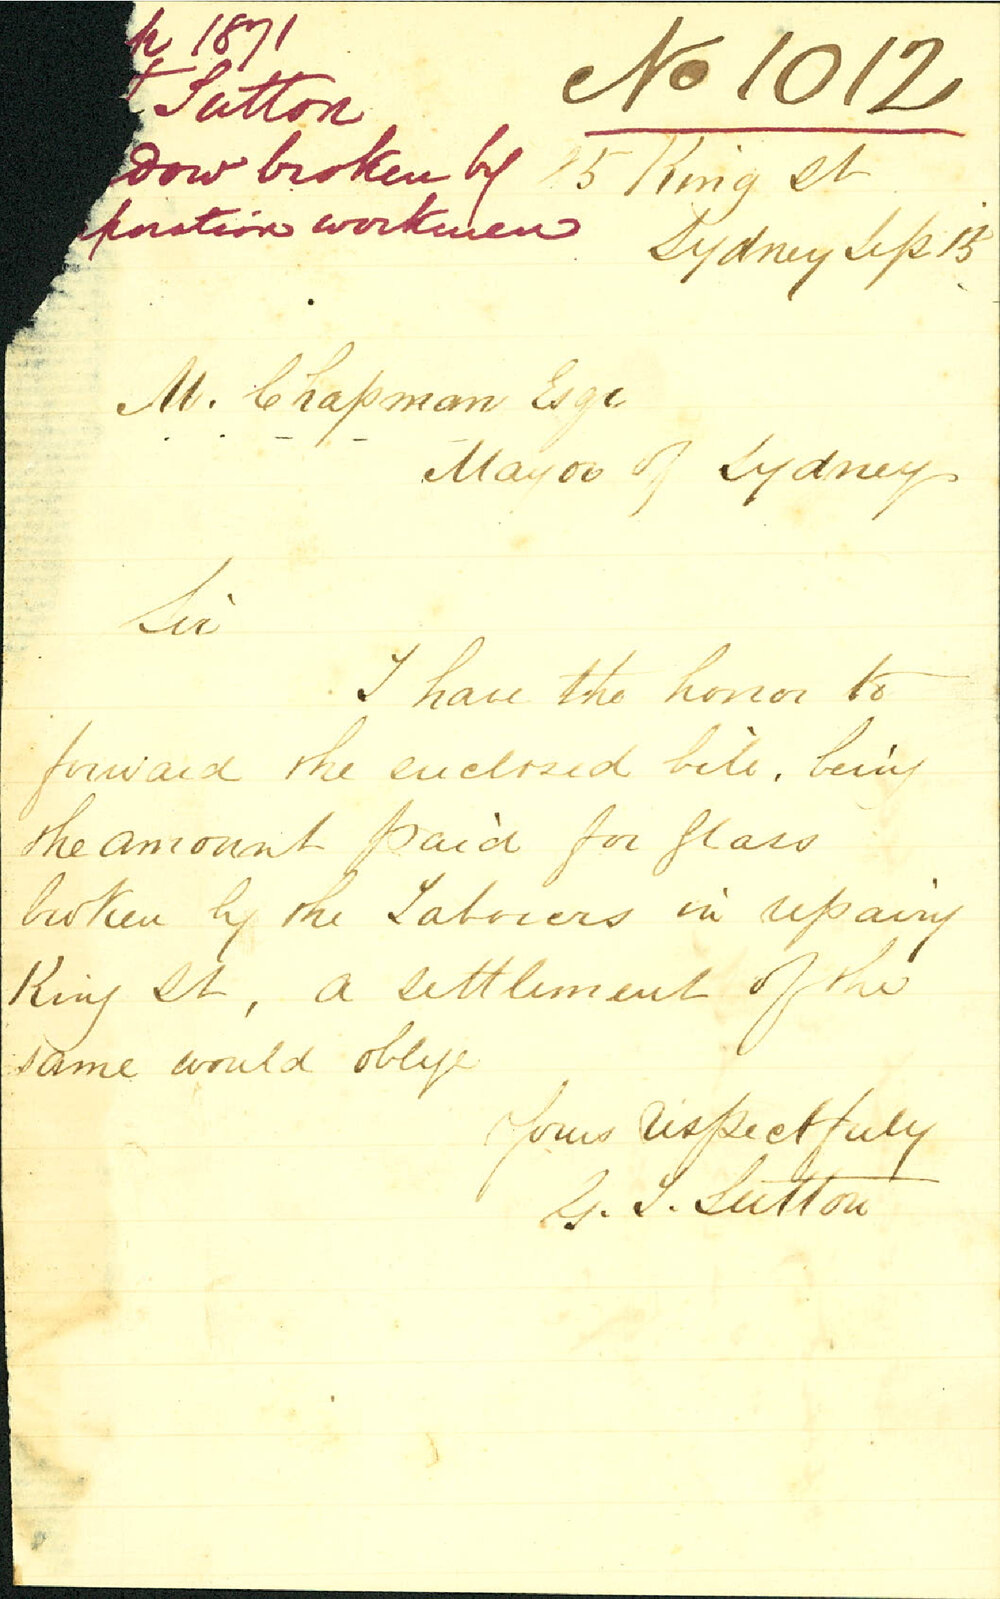 p 1871
t Sutton
dow broken by
poration workmen
No 1012
75 King St
Sydney Sep 15
M. Chapman Esqe
Mayor of Sydney
Sir
I have the honor to
forward the enclosed bill, being
the amount paid for glass
broken by the Laborers in repairing
King St, a settlement of the
same would oblige
Yours respectfuly
G. T. Sutton